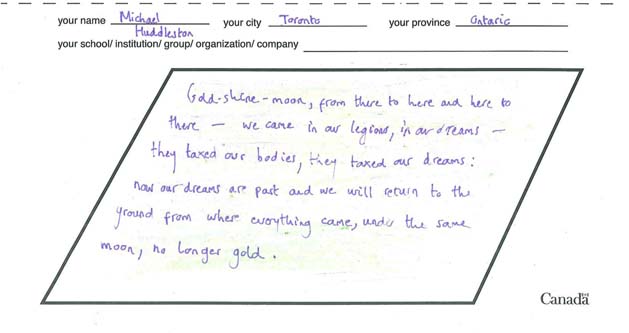 your name Michael Huddleston your city Toronto your province Ontario
your school/ institution/ group/ organization/ company
Gold-shine-moon, from there to here and here to
there — we came in our legions, in our dreams —
they taxed our bodies, they taxed our dreams:
now our dreams are past and we will return to the
ground from where everything came, under the same
moon, no longer gold.
Canada